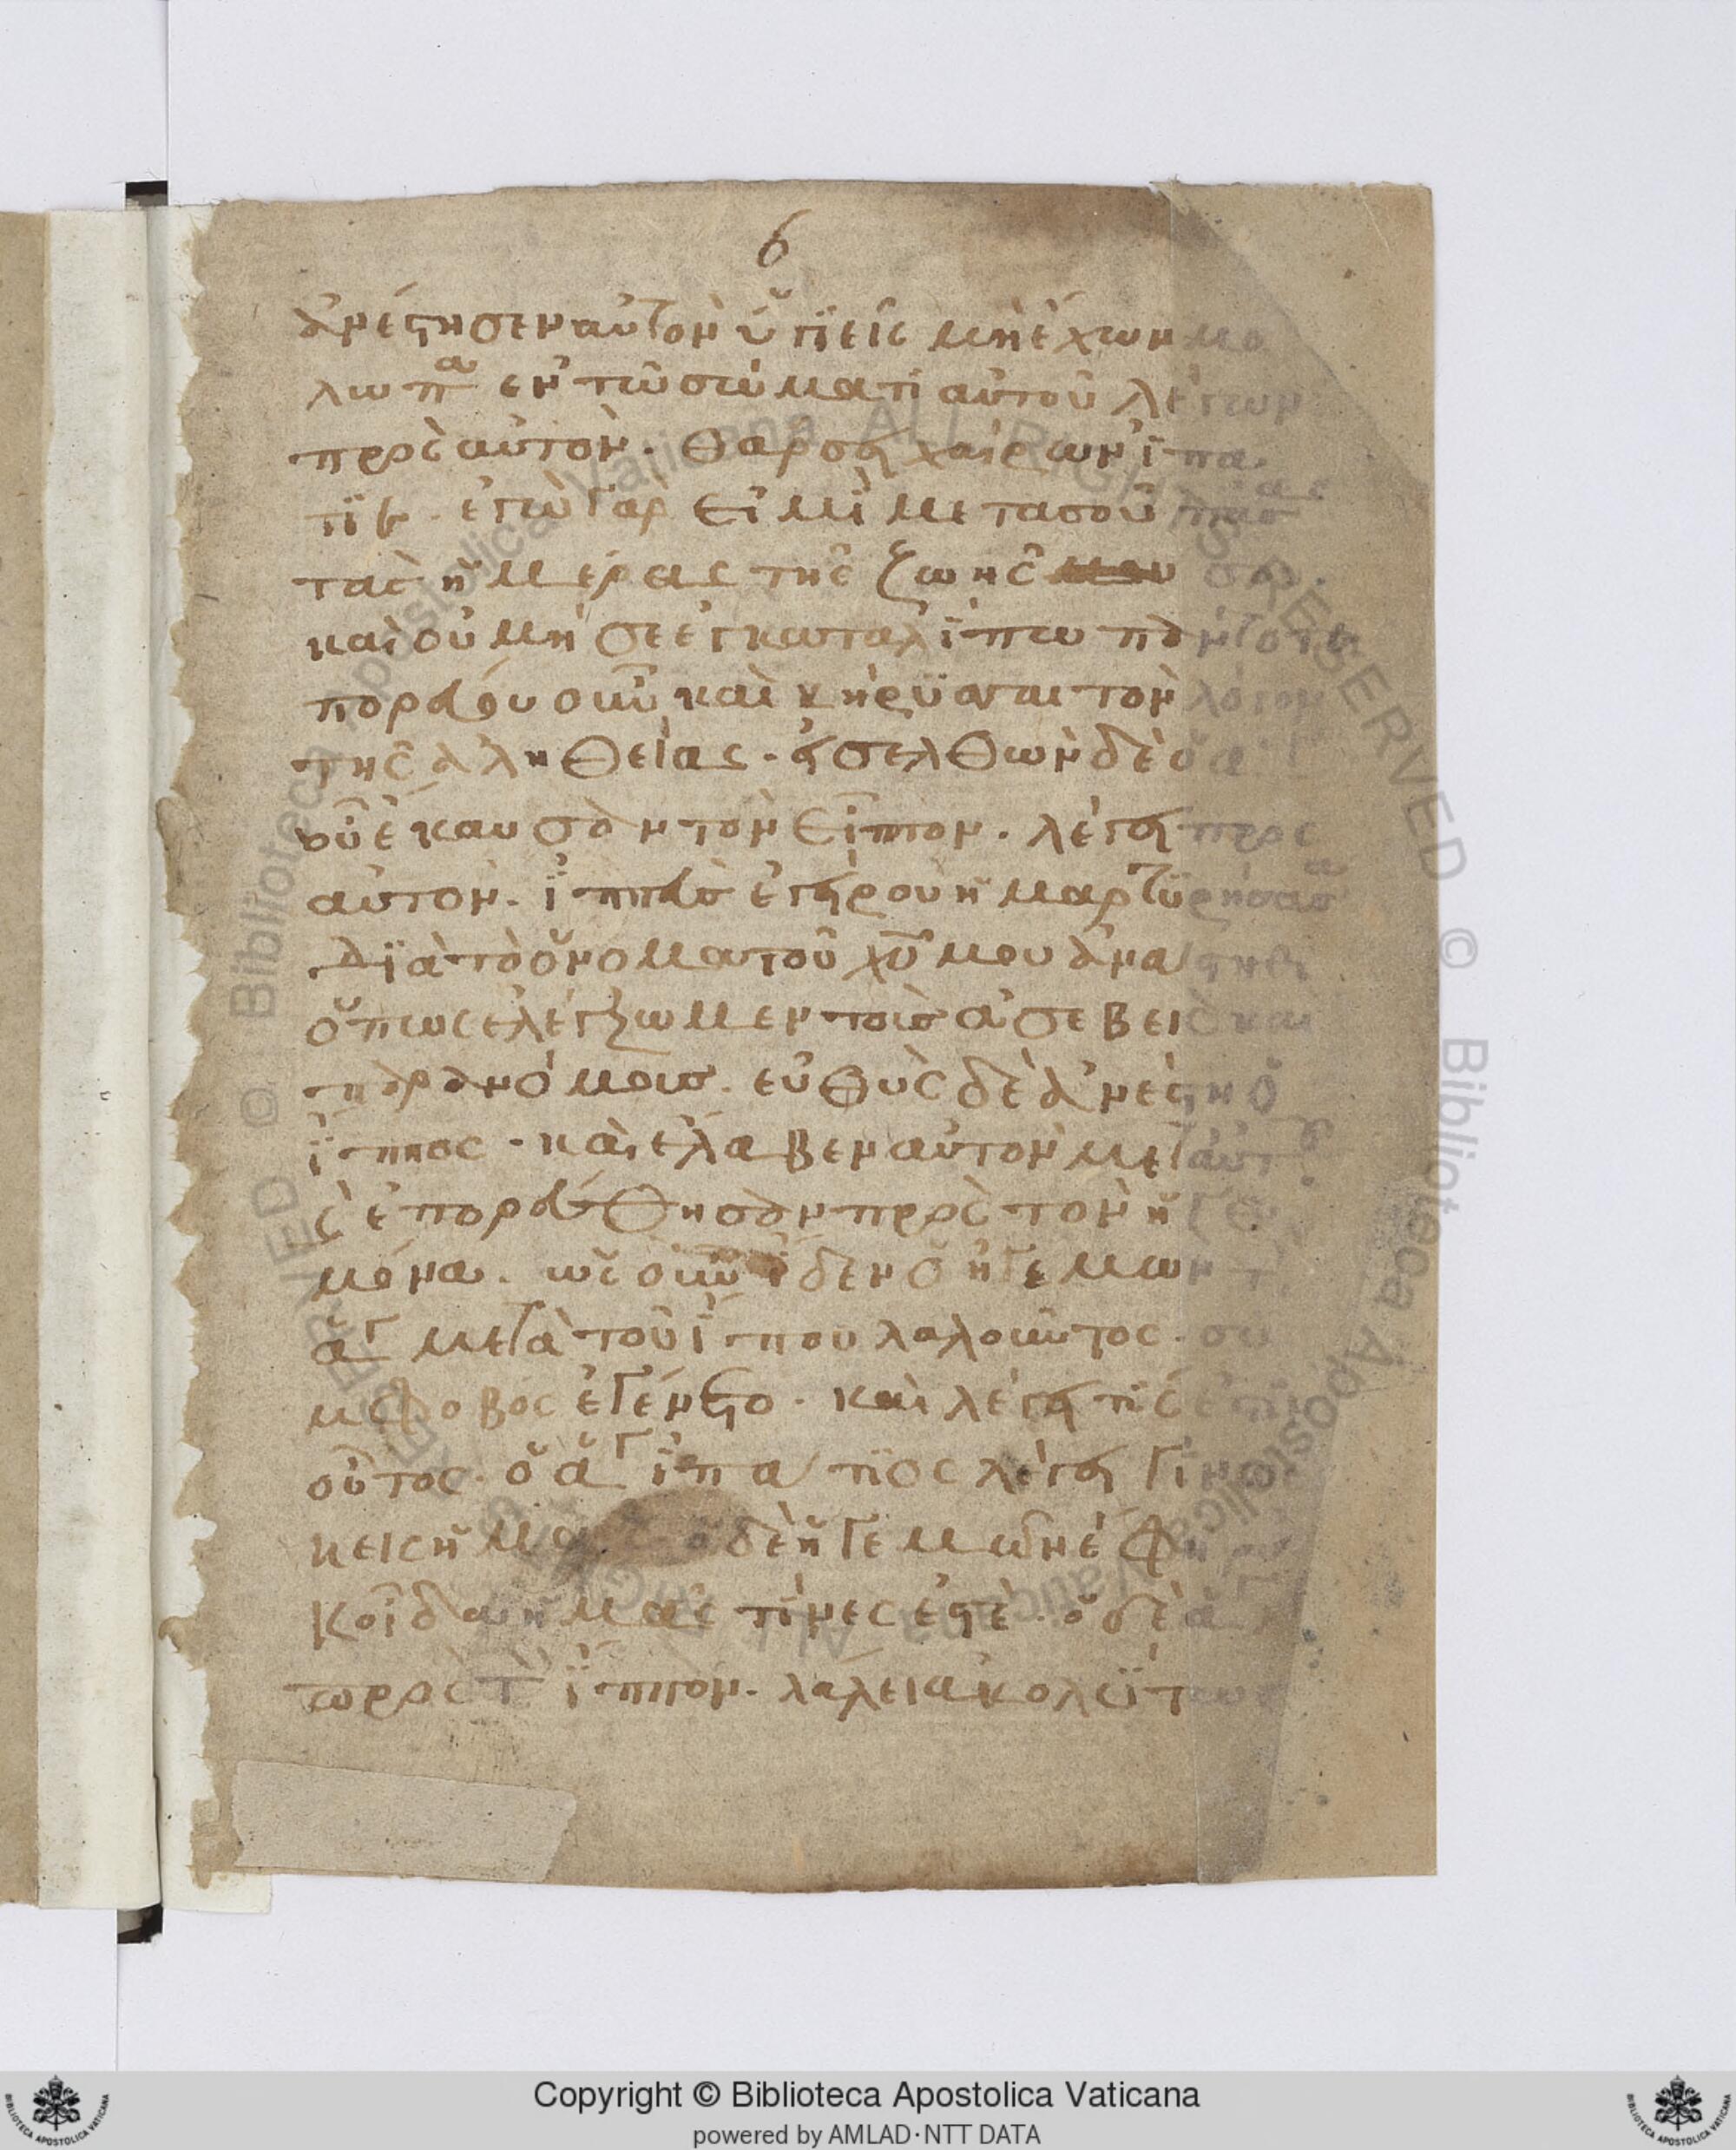 6
ἀνέστησεν αὐτὸν ὑγιεῖς μὴ ἔχων μο
λωπα ἐν τῶ σώματι αὐτοῦ λέγων
πρὸς αὐτὸν. θάρσει χαίρων ἱπα
τϊε. ἐγὼ γάρ εἰμὶ μετασοῦ πάσας
τὰς ἡμέρας τῆς ζωῆς σου.
καὶ οὐ μή σε ἐγκαταλίπω πάντοτε
πορεύου οῦν καὶ κήρυξαι τὸν λόγον
τῆς ἀληθείας. εἰσελθὼν δὲ ὁ
οῦ ἔκαυσαν τὸν ἵππον. λέγει πρὸς
αὐτὸν. ἵππε ἐγείρου ἡ μαρτϋρήσας
διὰ τὸ ὄνομα τοῦ χῦ μου ἀνάστηθι
ὅπως ἐλέγξωμεν τοῖς ἀσεβεῖς καὶ
παρανόμοις. εὐθὺς δὲ ἀνέστη ὁ
ἵππος. καὶ ἔλαβεν αὐτὸν μετ αὐτοῦ
ϛ ἐπορεύθησαν πρὸς τὸν ἡγε
μόνα. ὡς οῦν ἶδεν ὁ ἡγεμὼν τ
ἅγ μετὰ τοῦ ἵππου λαλοῦντος. συ
μφοβος ἐγένετο. καὶ λέγει τίς ἐστι
οὗτος. ὁ ἅγ ἱπάτϊος λέγει γινω
κεις ἡμᾶς. ὁ δὲ ἡγεμὼν ἔφη οὐ
κ οἶδα ἡμᾶς τίνες ἐστὲ. ὁ δὲ ἅγ
πρὸς τ ἵππον. λάλει ἀκολύτως
Copyright © Biblioteca Apostolica Vaticana
powered by AMLAD·NTT DATA